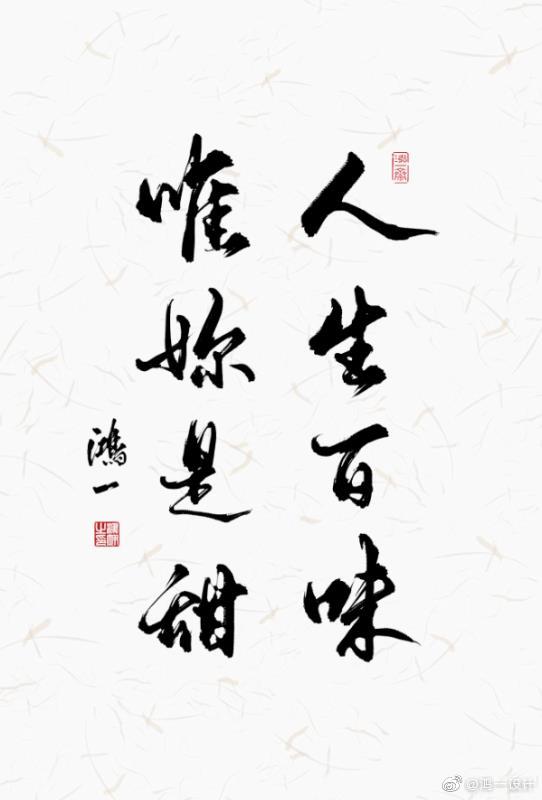 人生百味
唯妳是甜
鸿一
@鸿一设计